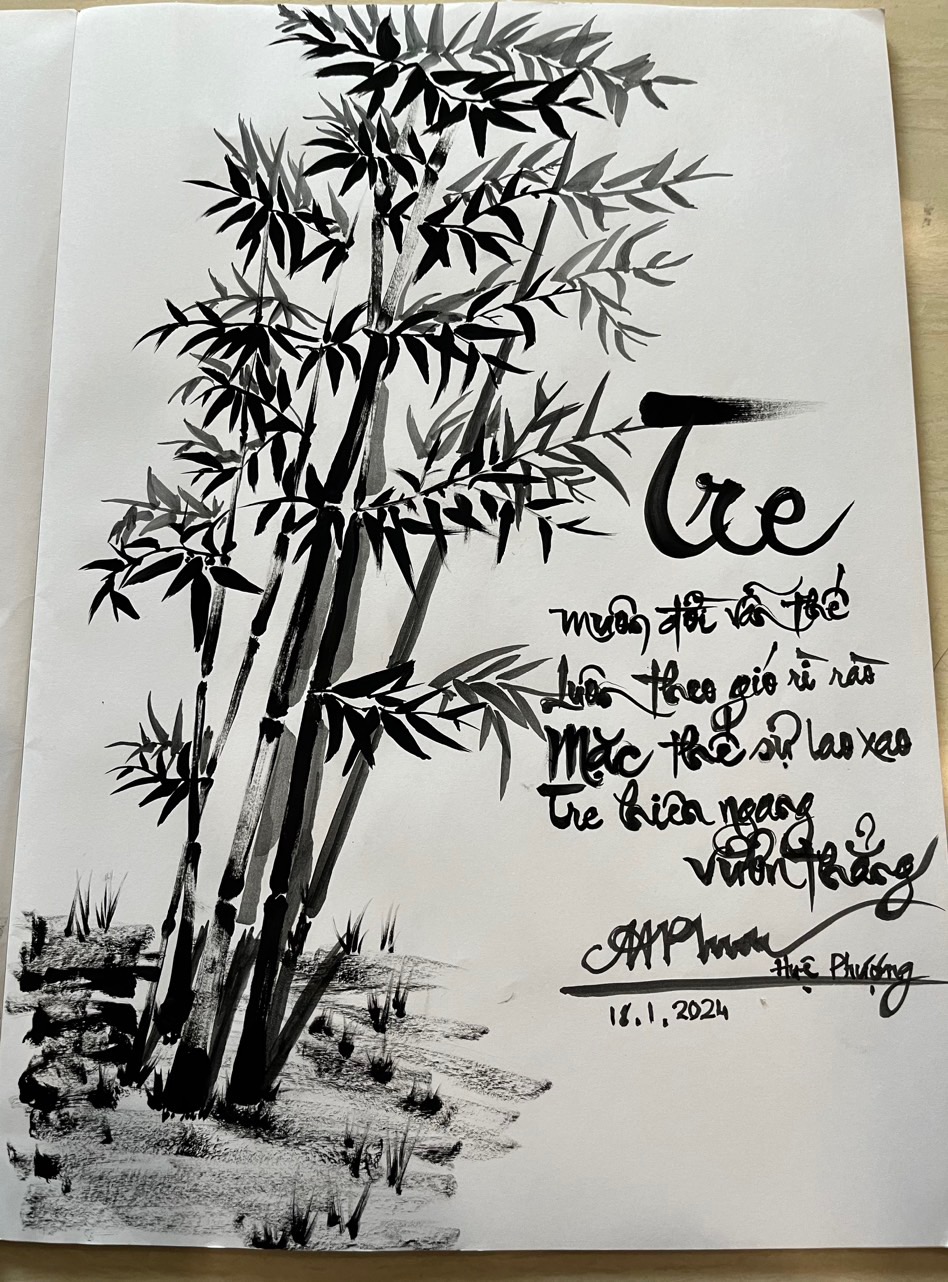 Tre
Muôn đời vẫn thế
Luôn theo gió rì rào
Mặc thế sự lao xao
Tre hiên ngang
vươn thẳng
Huệ Phượng
18.1.2024